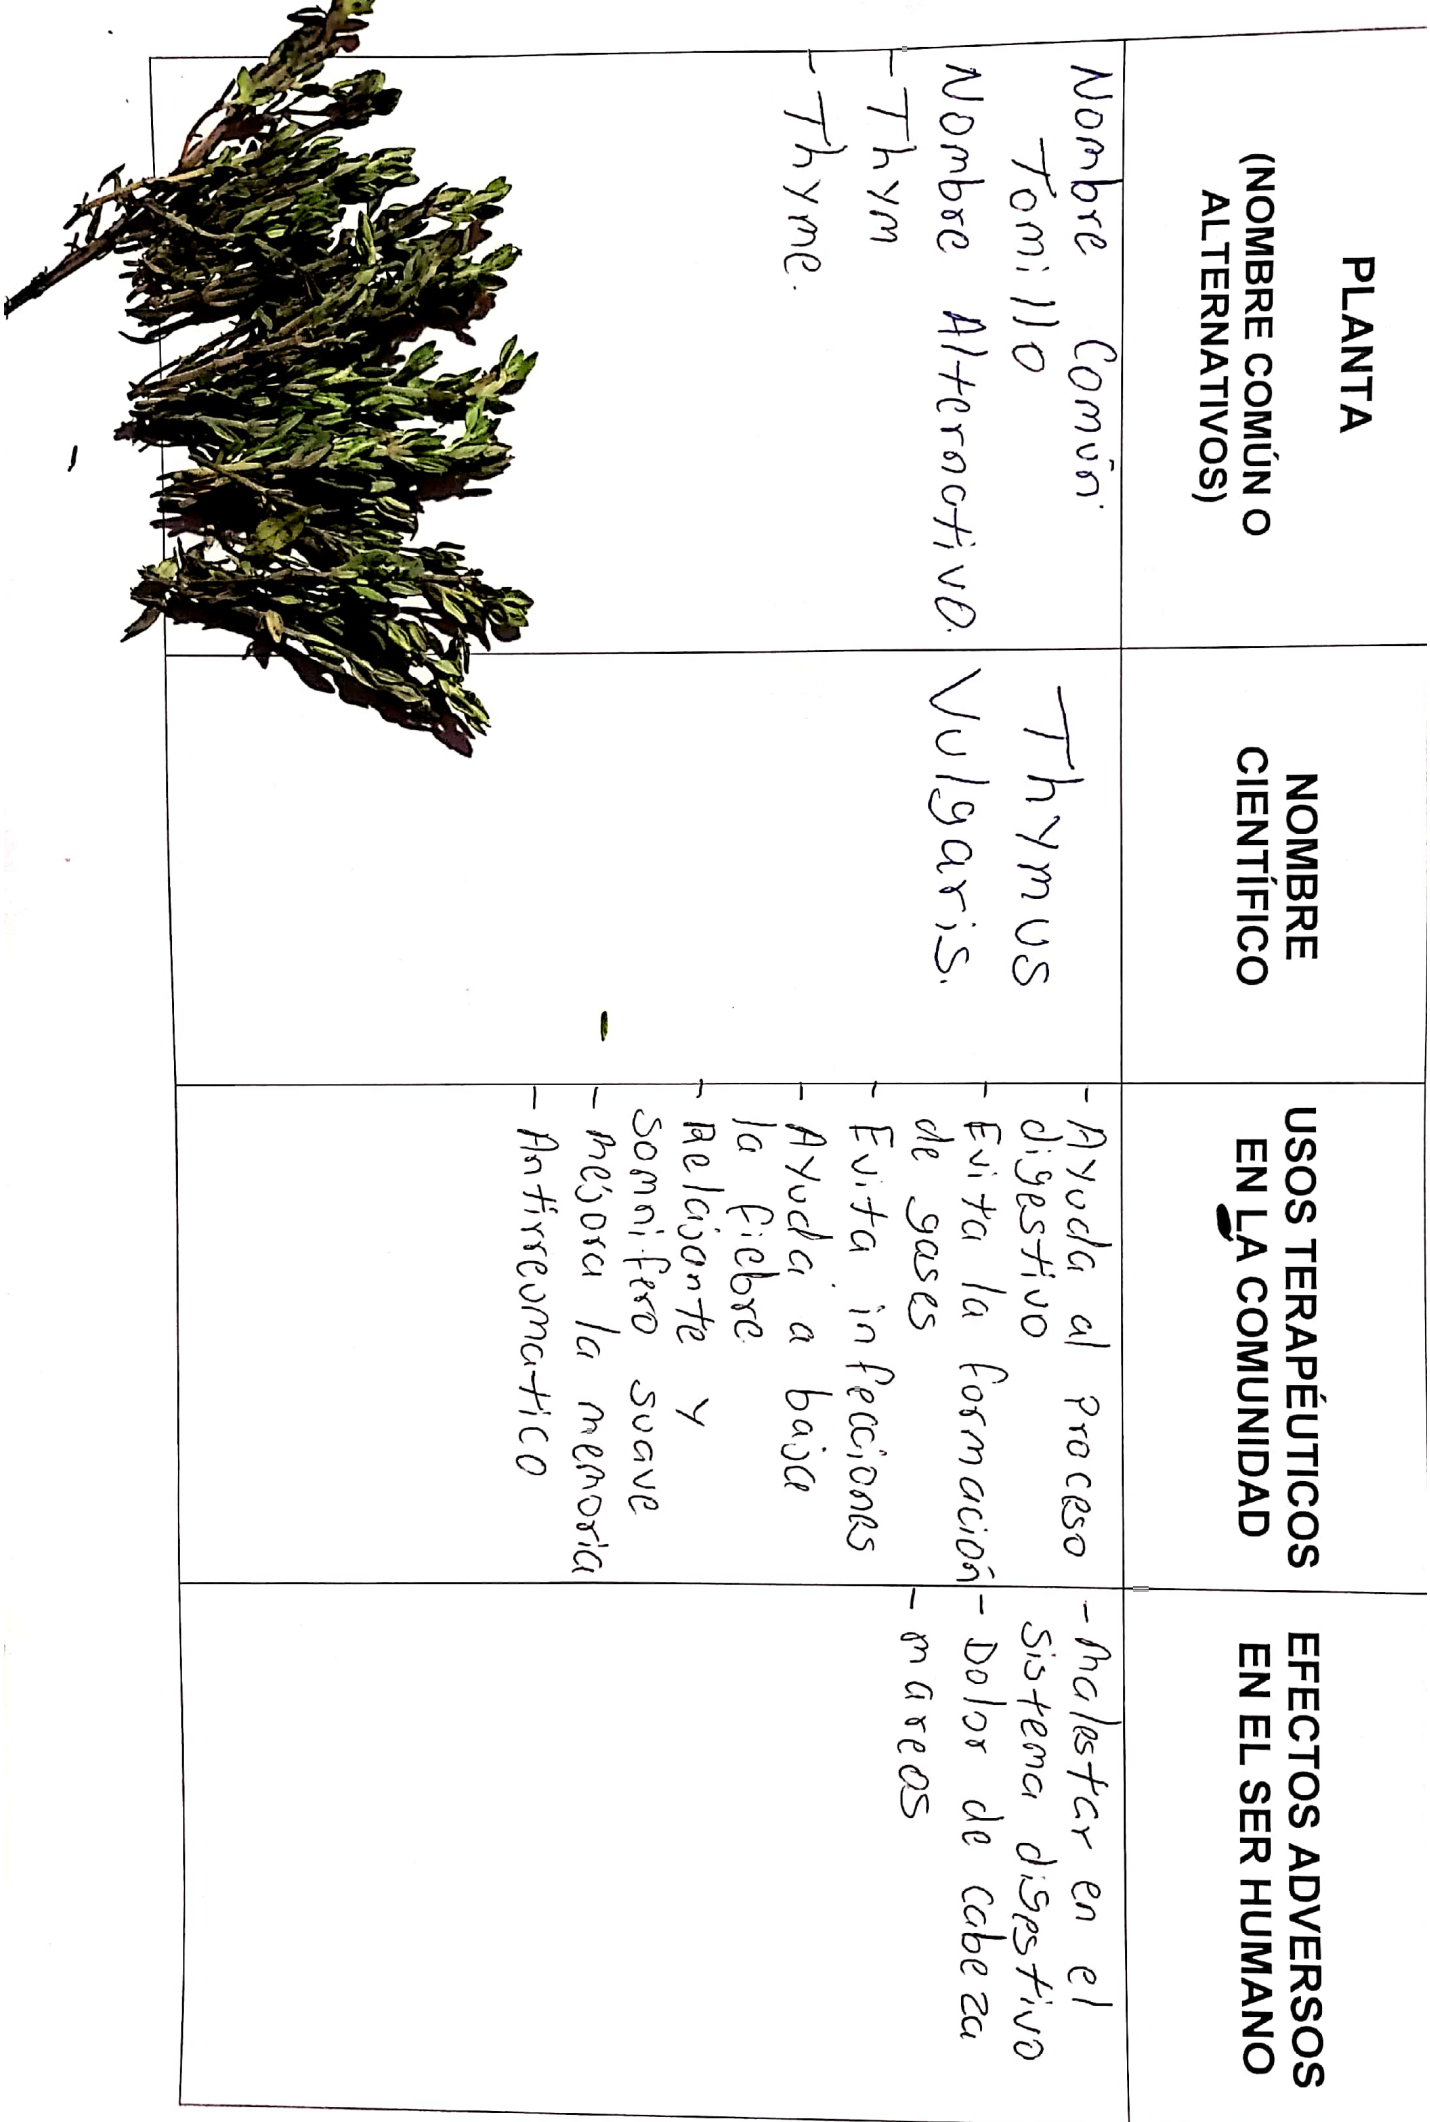 PLANTA
(NOMBRE COMÚN O
ALTERNATIVOS)
NOMBRE
CIENTÍFICO
USOS TERAPÉUTICOS
EN LA COMUNIDAD
EFECTOS ADVERSOS
EN EL SER HUMANO
Nombre Común
Tomillo
Nombre Alternativo.
- Thym
- Thyme.
Thymus
Vulgaris.
- Ayuda al proceso
digestivo
- Evita la formación
de gases
- Evita infecciones
- Ayuda a baja
la fiebre
- Relajante y
somnifero suave
- Mejora la memoria
- Antirreumatico
- Malestar en el
sistema digestivo
- Dolor de cabeza
- mareos